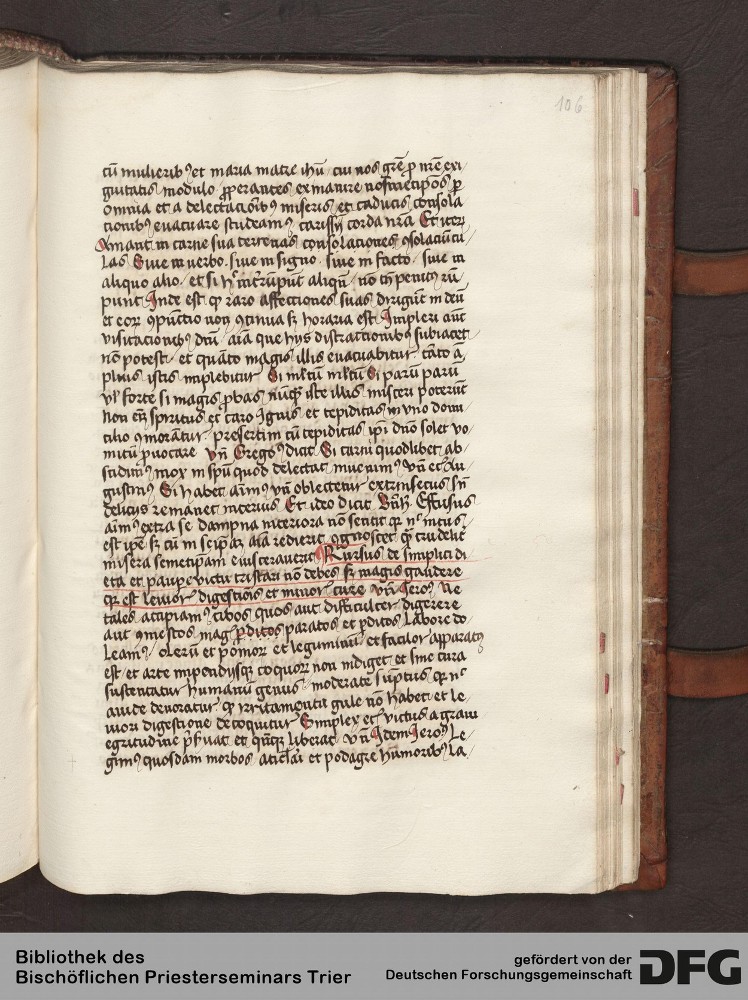 106
cū mulierib⁹ et maria matre ihū / cui nos grē ꝓ nrē exi
guitatis modulo ꝓperantes
omnia et a delectacioīb⁹ miseris et caducis consola
cionib⁹ evacuare studeam⁹ carissī corda nrā Et iterū
Amant in carne sua terrenas consolaciones
las Sive in verbo . sive in signo . sive in facto / sive in
aliquo alio / et si
punt Inde est qꝫ raro affectiones suas dirigūt in deū
et eoꝝ ꝯpūctio non ꝯtinua sꝫ horaria est Impleri aūt
visitacionib⁹ aīa que hys distractionibus subiacet
nō potest / et quāto magis illis evacuabitur tāto
plius istis implebitur Si mltū mltū Si parū parū
vl forte si magis ꝓbas nūqꝫ iste illis misceri poterūt
Non eī spiritus et caro Ignis et tepiditas in vno domi
cilio ꝯmorātur / presertim cū tepiditas ipī dn̄o solet vo
mitū ꝓvocare vn̄ Grego⁹ dicit Si carni quodlibet ab
scidim⁹ mox in spū quod delectat inuenim⁹ vn̄
gustin⁹ Si habet aīm⁹ vn̄ oblectetur extrinsecus
deliciis remanet internis Et ideo dicit Bn̄h Effusus
aīm⁹ extra se dampna interiora nō sentit
est ipse sꝫ cū in seipaꝫ aīa redierit ꝯgnoscet qꝫ crudelit
misera semetipam evisceraverit Rursus de simplici di
eta et paupe victu tristari nō debes sꝫ magis gaudere
qꝫ est levior digestiois et minor cure vn̄ Iero⁹ Ne
tales accipiam⁹ cibos quos aut difficulter digerere
aut ꝯmestos mag paratos et ꝑditos labore do
leam⁹ / oleꝝ et pomoꝝ et leguminū / et facilor apparat⁹
est / et arte inpendysqꝫ coquoꝝ non indiget / et sine cura
sustentatur humanū genus / moderate sūptus
avide devoratur qꝫ irritamenta gule nō habet et le
viori digestione decoquitur Simplex et victus a gravi
egritudine p̄servat et liberat vn̄ Idem Iero⁹ Le
gim⁹ quosdam morbos et podagre humorib⁹ la
Bibliothek des
Bischöflichen Priesterseminars Trier
gefördert von der
Deutschen Forschungsgemeinschaft
DFG